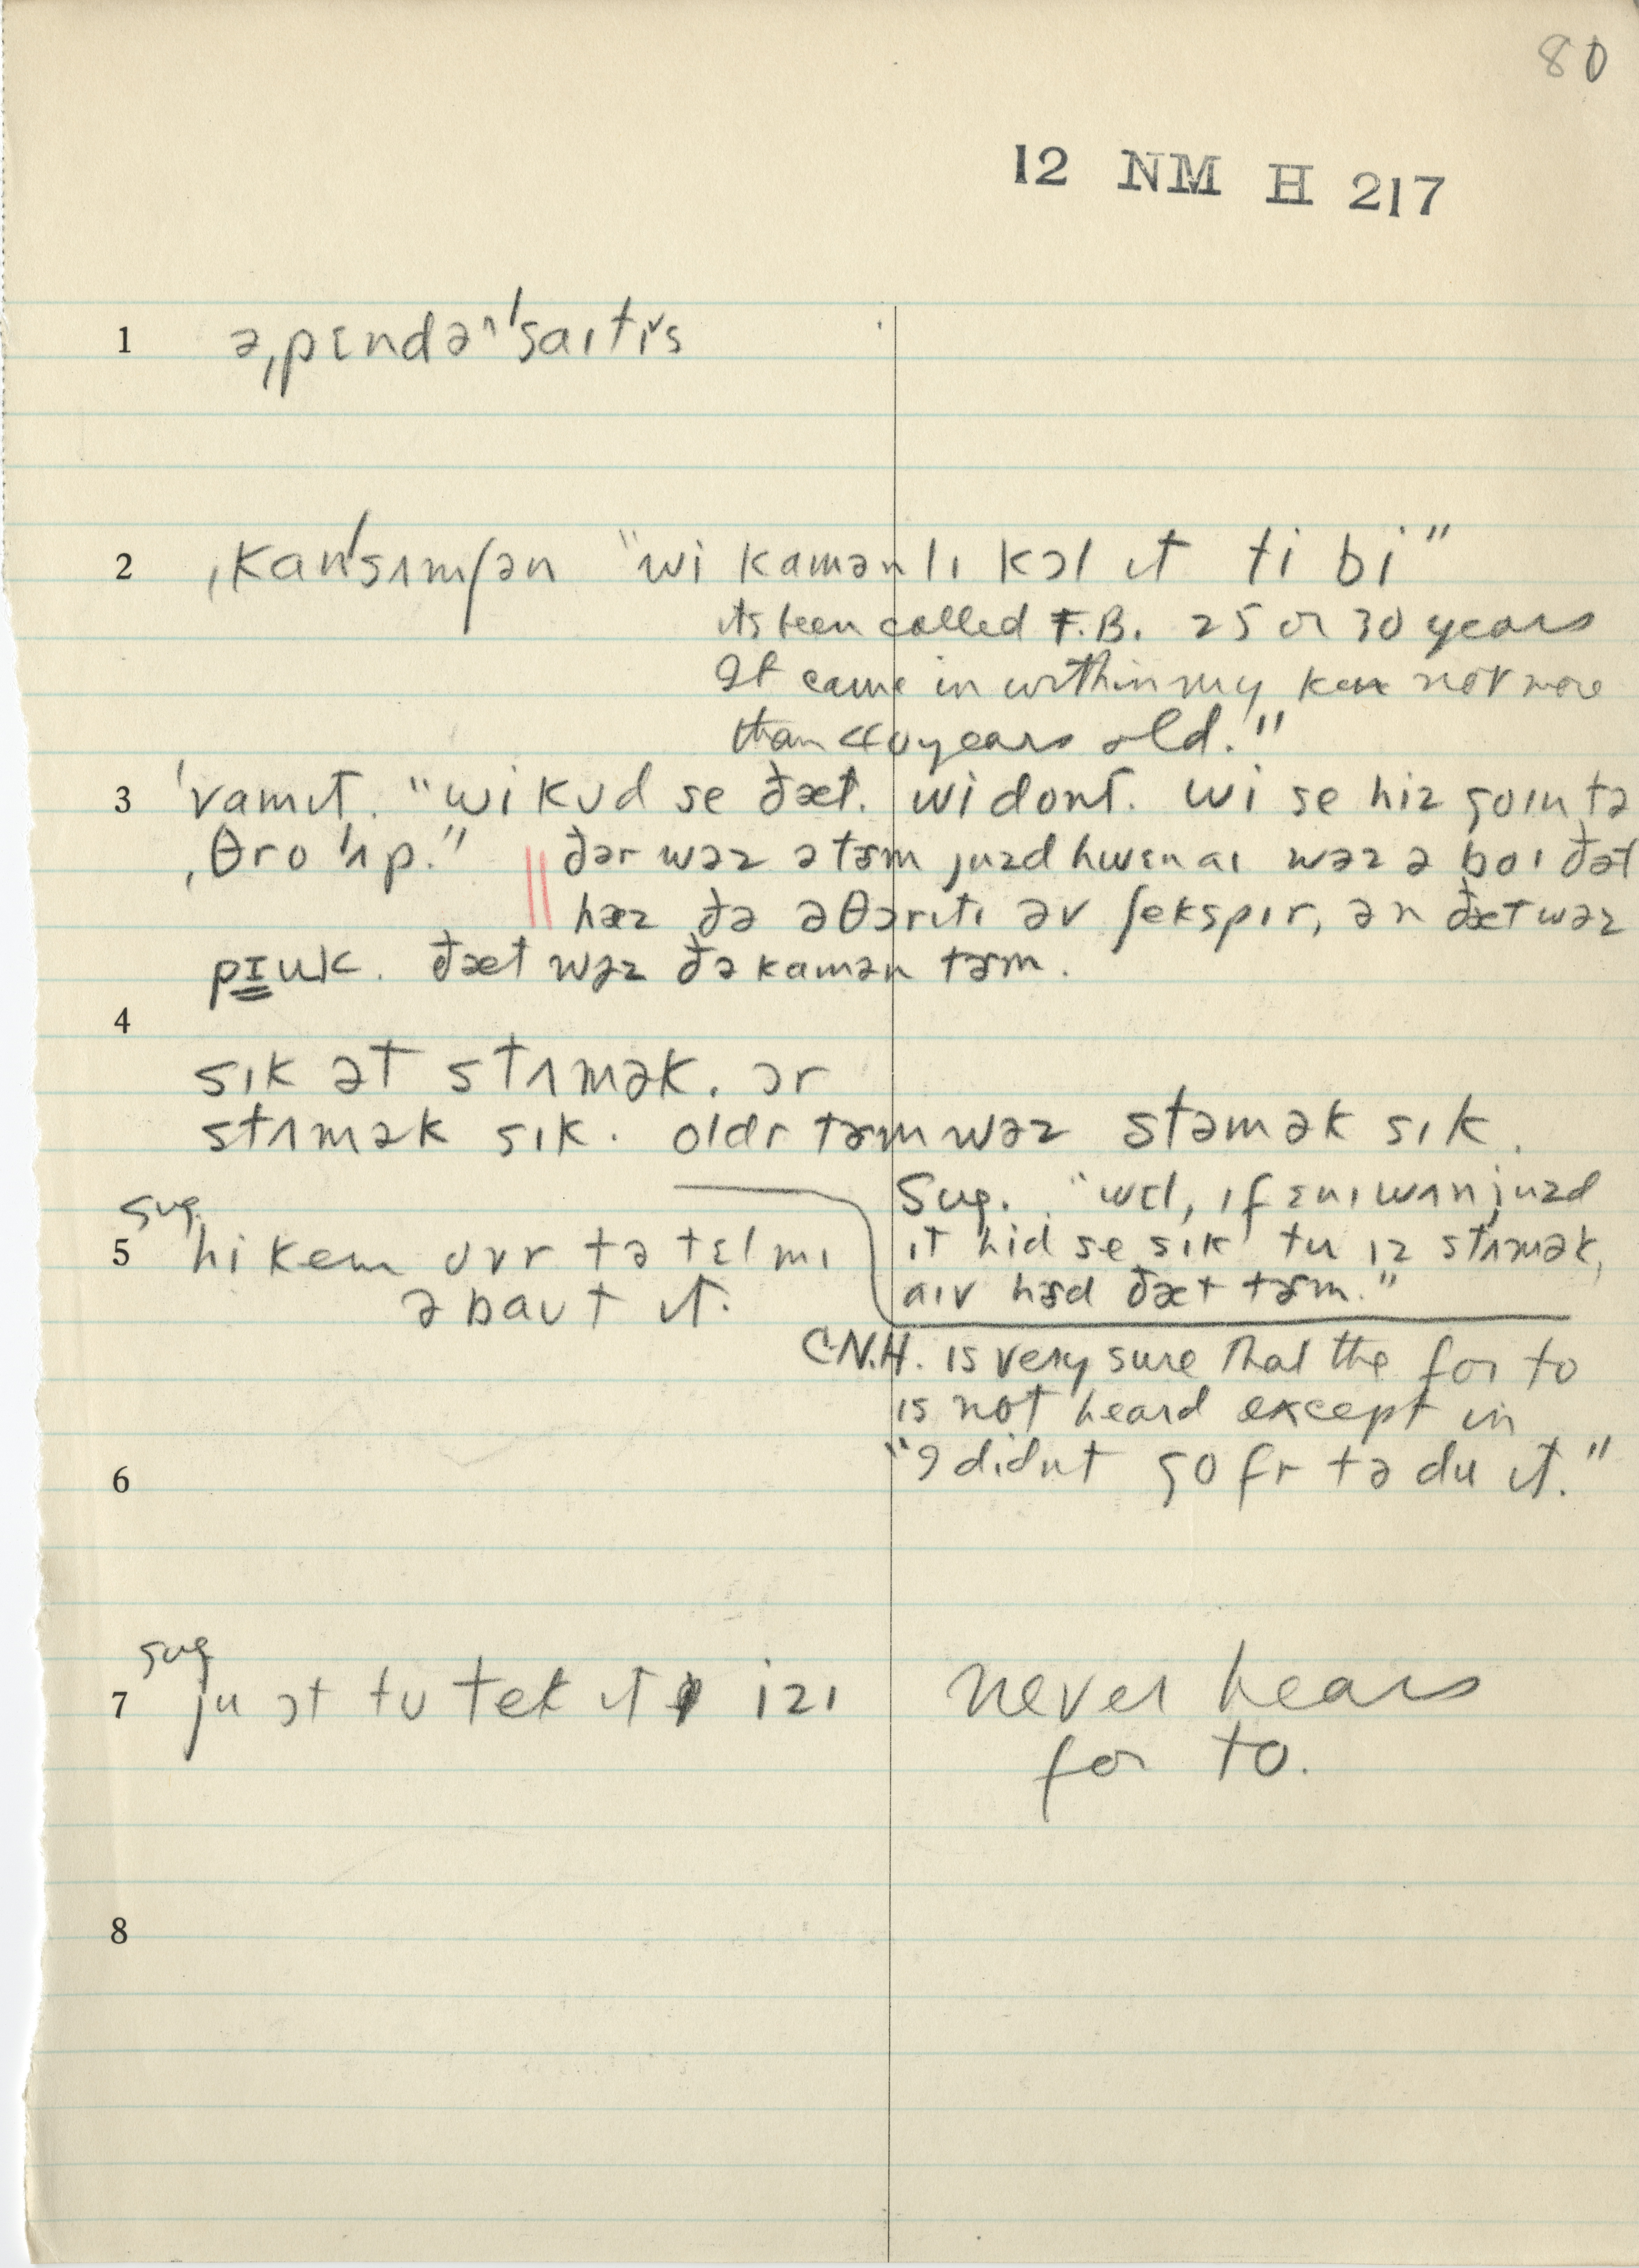 80
12 NM H 217
1 əˌpɛndəˈsaɪtɪˇs
2 ˌkanˈsʌmʃən "wi kamənlɪ kɔl ɪt ti bi"
its been called T.B. 25 or 30 years
It came in within my ken not more
than 40 years old."
3 ˈvamɪt. "wi kʊd se ðæt. wi dont. wi se hiz goɪn tə
ˌθro ˈʌp." || ðər wəz ə tɝm juzd hwɛn aɪ wəz ə bɔɪ ðət
hæz ðə əθɔrɪtɪ əv ʃekspɪr, ən ðæt wəz
pɪuk. ðæt wəz ðə kamən tɝm.
4
sɪk ət stʌmək. ər
stʌmək sɪk. oldr tɝm wəz stəmək sɪk.
sug. Sug. "wɛl, ɪf ɛnɪwʌn juzd
5 hi kem ovr tə tɛl mɪ ɪt hid se sɪk tu ɪz stʌmək,
əbaʊt ɪt. aɪv hɝd ðæt tɝm."
C.N.H. is very sure that the for to
is not heard except in
6 "I didnt go fr tə du ɪt."
sug
7 ju ɔt tʊ tek ɪt izɪ never hears
for to.
8